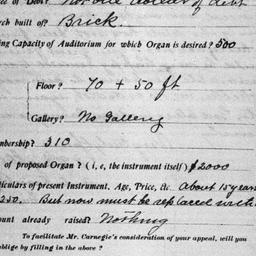 of Debt? Not one dollar of debt
rch built of? Brick.
ing Capacity of Auditorium for which Organ is desired? 500
Floor? 70 + 50 ft
Gallery? No Gallery
mbership? 310
of proposed Organ? (i, e, the instrument itself) $2000
iculars of present Instrument, Age, Price, &c. About 15 years
250. But now must be replaced with
ount already raised? Nothing
To facilitate Mr. Carnegie's consideration of your appeal, will you
oblige by filling in the above?